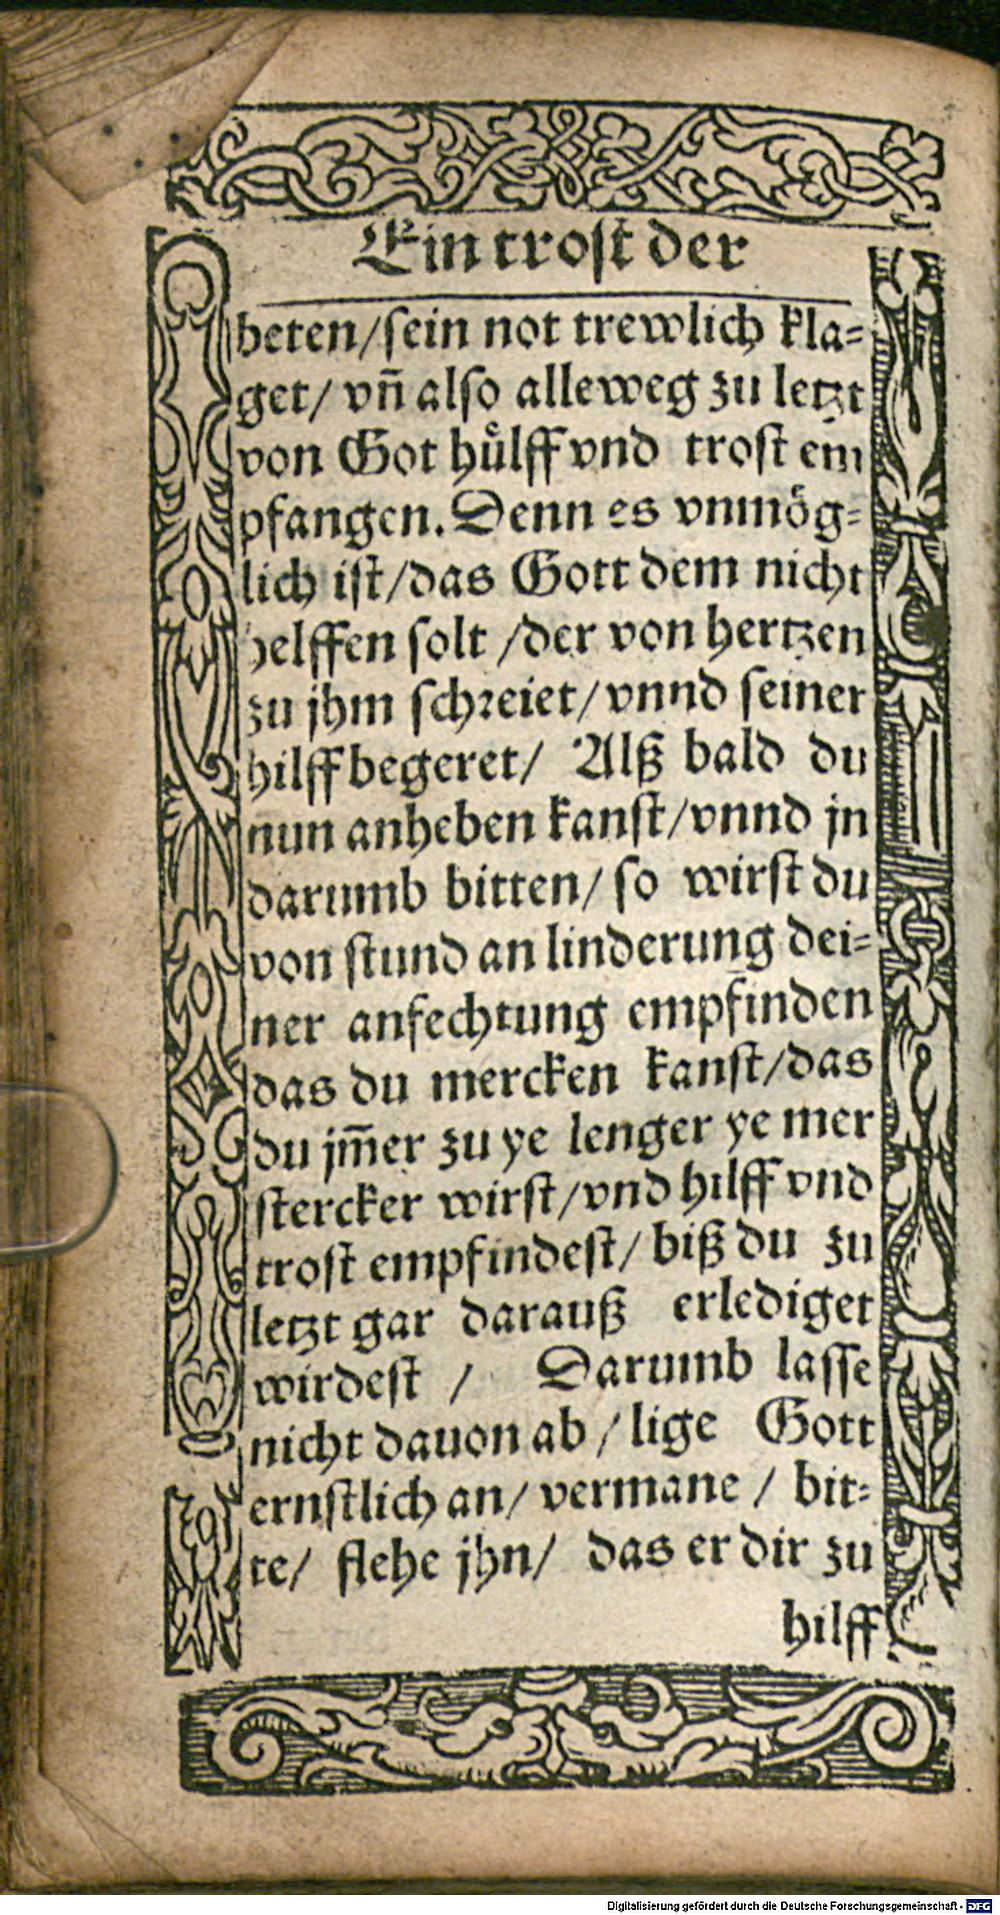 Ein trost der
beten/sein not trewlich kla=
get/ vñ also alleweg zu letzt
von Got huͤlff vnd trost em
pfangen. Denn es vnmoͤg=
lich ist/das Gott dem nicht
helffen solt /der von hertzen
zu jhm schreiet/vnnd seiner
hilff begeret/ Alß bald du
nun anheben kanst/vnnd jn
darumb bitten/ so wirst du
von stund an linderung dei=
ner anfechtung empfinden
das du mercken kanst/das
du jm̃er zu ye lenger ye mer
stercker wirst/vnd hilff vnd
trost empfindest/ biß du zu
letzt gar darauß erlediget
wirdest / Darumb lasse
nicht dauon ab /lige Gott
ernstlich an/ vermane / bit=
te/ flehe jhn/ das er dir zu
hilff
Digitalisierung gefördert durch die Deutsche Forschungsgemeinschaft - DFG